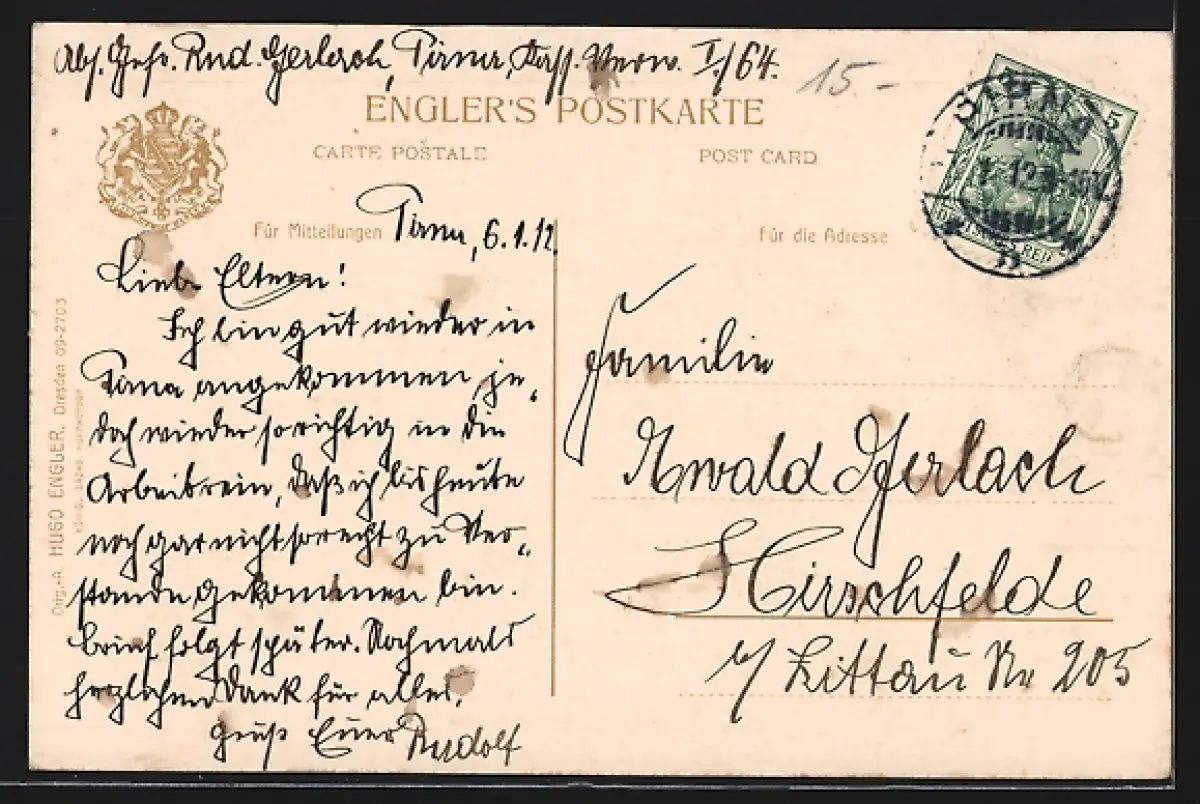 Abs. Gefr. Rud. Gerlach, Pirna, Kass. Verw. I/64.
15.-
ENGLER'S POSTKARTE
CARTE POSTALE
POST CARD
5
PIRNA
Für Mitteilungen
Pirna, 6.1.12.
Für die Adresse
Liebe Eltern!
Ich bin gut wieder in
Pirna angekommen, je-
doch wieder so richtig in die
Arbeit rein, daß ich bis heute
noch gar nicht so recht zu Ver-
stande gekommen bin.
Brief folgt später. Nochmals
herzlichen Dank für alles.
Gruß Euer Rudolf
Familie
Ewald Gerlach
Hirschfelde
b/ Zittau Nr 205
Orig.-A. HUGO ENGLER, Dresden 09-2703